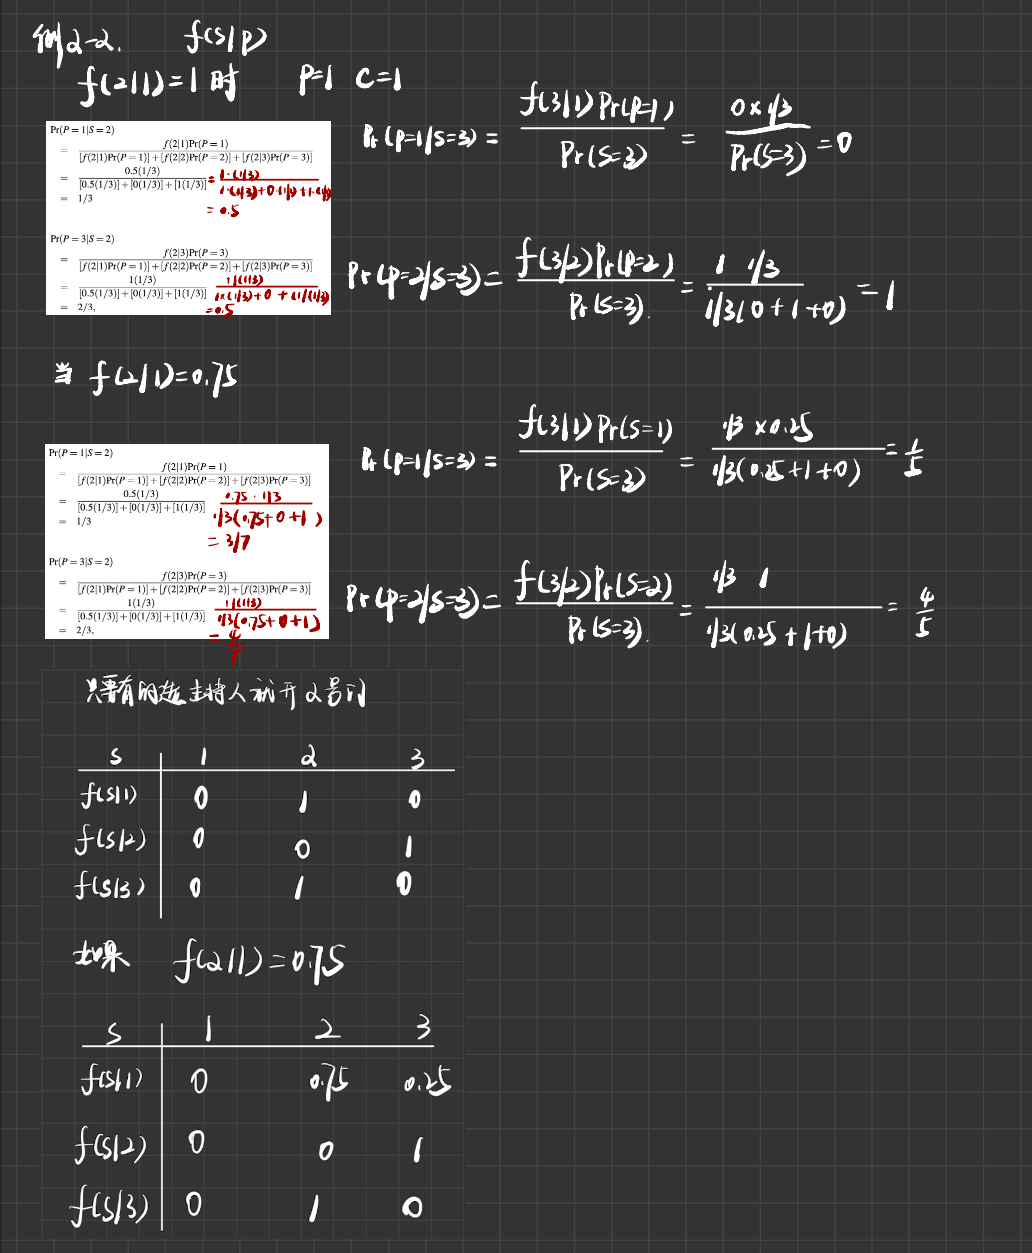 例2-2. f(s|p)
f(2|1)=1 时 P=1 C=1
Pr(P = 1|S = 2)
= f(2|1)Pr(P = 1) / [f(2|1)Pr(P = 1)] + [f(2|2)Pr(P = 2)] + [f(2|3)Pr(P = 3)]
= 0.5(1/3) / [0.5(1/3)] + [0(1/3)] + [1(1/3)] = 1·(1/3) / 1·(1/3)+0·(1/3)+1·(1/3)
= 1/3 = 0.5
Pr(P = 3|S = 2)
= f(2|3)Pr(P = 3) / [f(2|1)Pr(P = 1)] + [f(2|2)Pr(P = 2)] + [f(2|3)Pr(P = 3)]
= 1(1/3) / [0.5(1/3)] + [0(1/3)] + [1(1/3)] 1(1/3) / 1×(1/3)+0+(1)(1/3)
= 2/3, =0.5
Pr(P=1|S=3) = f(3|1)Pr(P=1) / Pr(S=3) = 0×1/3 / Pr(S=3) = 0
Pr(P=2|S=3) = f(3|2)Pr(P=2) / Pr(S=3). = 1 1/3 / 1/3(0+1+0) = 1
当 f(2|1)=0.75
Pr(P = 1|S = 2)
= f(2|1)Pr(P = 1) / [f(2|1)Pr(P = 1)] + [f(2|2)Pr(P = 2)] + [f(2|3)Pr(P = 3)]
= 0.5(1/3) / [0.5(1/3)] + [0(1/3)] + [1(1/3)] 0.75·1/3 / 1/3(0.75+0+1)
= 1/3 = 3/7
Pr(P = 3|S = 2)
= f(2|3)Pr(P = 3) / [f(2|1)Pr(P = 1)] + [f(2|2)Pr(P = 2)] + [f(2|3)Pr(P = 3)]
= 1(1/3) / [0.5(1/3)] + [0(1/3)] + [1(1/3)] 1(1/3) / 1/3(0.75+0+1)
= 2/3, = 4/7
Pr(P=1|S=3) = f(3|1)Pr(S=1) / Pr(S=3) = 1/3×0.25 / 1/3(0.25+1+0) = 1/5
Pr(P=2|S=3) = f(3|2)Pr(S=2) / Pr(S=3). = 1/3 1 / 1/3(0.25+1+0) = 4/5
只要有的选主持人就开2号门
S 1 2 3
f(s|1) 0 1 0
f(s|2) 0 0 1
f(s|3) 0 1 0
如果 f(2|1)=0.75
S 1 2 3
f(s|1) 0 0.75 0.25
f(s|2) 0 0 1
f(s|3) 0 1 0